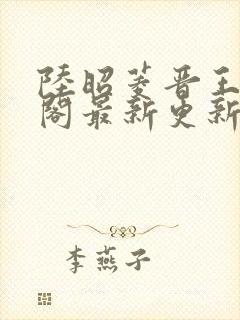 陸昭菱晋王
閣最新更新
李燕子